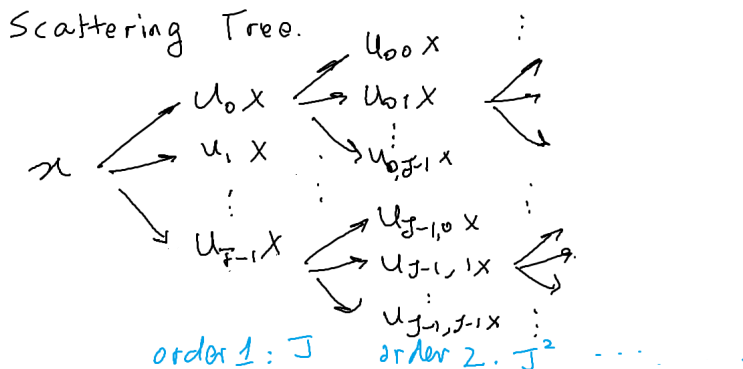 Scattering Tree.
U₀₀ X ⋮
x U₀ X U₀₁ X
U₁ X ⋮ U₀,J-1 X
⋮ ⋮ ⋮
U_J-1 X U_J-1,0 X
U_J-1,1 X
⋮
U_J-1,J-1 X ⋮
order 1: J order 2. J² ....